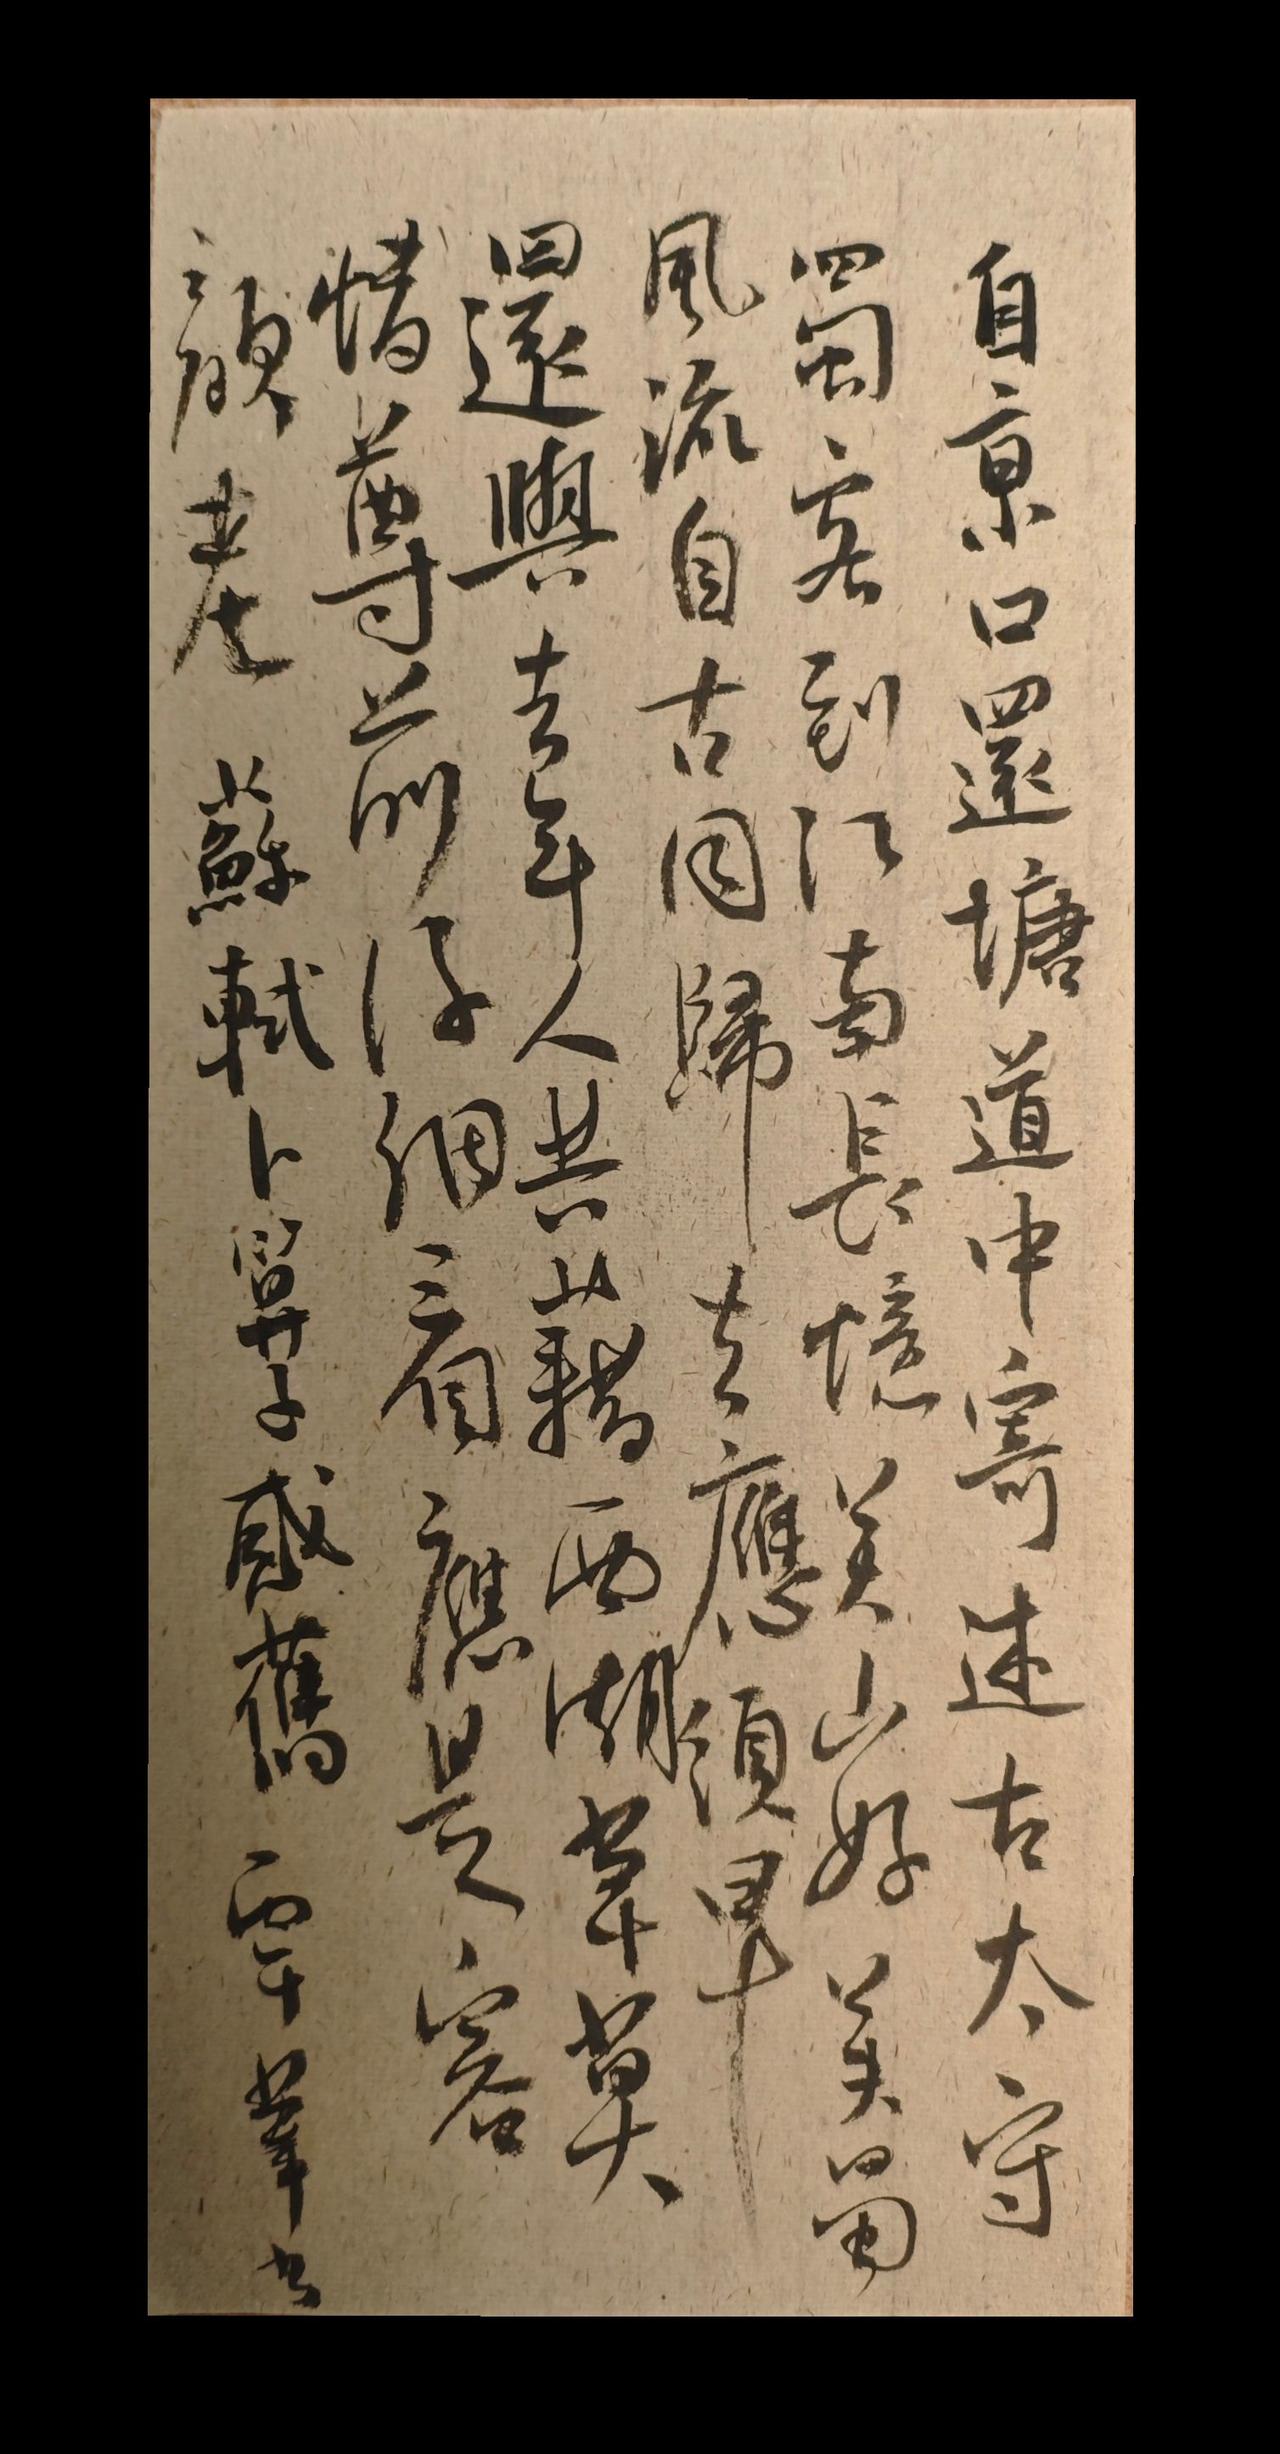 自京口還塘道中寄述古太守
蜀客到江南長憶吳山好吳蜀
風流自古同歸去應須早
還與去年人共藉西湖草莫
惜尊前仔細看應是容
顏老 蘇軾卜算子感舊 覃 書